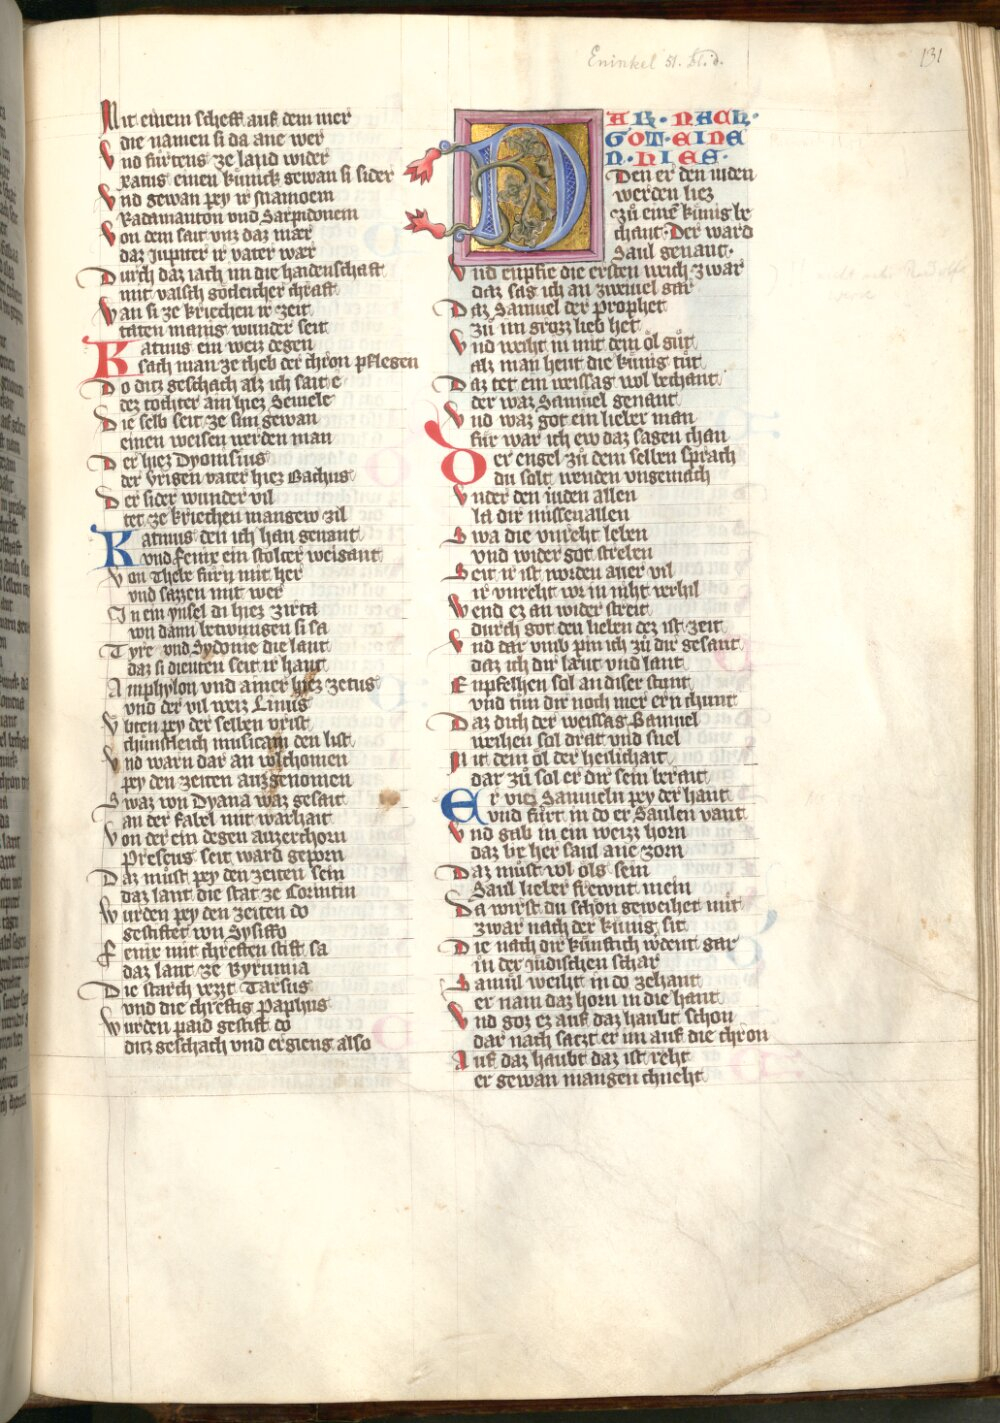 Eninkel 51. bl. d.
131
Mit einem scheff auf dem mer
die namen si da ane wer
Vnd fůrtens ze land wider
xatus einen kůnick gewan si sider
Vnd gewan pey ir
Radamanton vnd Sarpidonem
Von dem sait vnz daz mær
daz Jupiter ir vater wær
Durch daz iach im die haidenschaft
mit valsch gôtleicher chraft
Wan si ze kriechen ir zeit
taten manig wunder seit
Katmus ein weiz degen
sach man ze theb der chron pflegen
Do ditz geschach alz ich sait e
dez tochter ain hiez Semele
Die selb seit ze sun gewan
einen weisen werden man
Der hiez Dyonisius
der vrigen vater hiez Bachus
Der sider wunder vil
tet ze kriechen mangew zil
Katmus den ich han genant
vnd fenix ein stolter weigant
Von Thebe fůrn mit her
vnd sazzen mit wer
In ein ynsel di hiez zirta
von dann betwungen si sa
Tyre vnd Sydonie die lant
daz si dienten seit ir hant
Amphylon vnd ainer hiez zetus
vnd der vil weiz Linus
Vbten pey der selben vrist
chůnstleich musicam den list
Vnd warn dar an volchomen
pey den zeiten auzgenomen
Swaz von Dyana waz gesait
an der fabel mit warhait
Von der ein degen auzerchorn
Preseus seit ward geporn
Daz můst pey den zeiten sein
daz lant die stat ze Corintin
Wurden pey den zeiten do
gestiftet von Sysiffo
Fenix mit chreften stift sa
daz lant ze Byrinnia
Die starch vezt Tarsus
vnd die chreftig Paphus
Wurden paid gestift do
ditz geschach vnd ergieng also
DAR · NACH ·
GOT · EINE
N · NIES ·
Den er den iuden
werden liez
zů einē kůnig be
chant · Der ward
Saul genant ·
Vnd enpfie die ersten weich zwar
daz sag ich an zweiuel gar
Daz Samuel der prophet
zů im grozz lieb het
Vnd weiht in mit dem ôl gůt
alz man heut die kůnig tůt
Daz tet ein weissag wol bechant
der waz Samuel genant
Vnd waz got ein lieber man
fůr war ich ew daz sagen chan
Der engel zů dem selben sprach
du solt wenden vngemach
Vnder den iuden allen
la dir missevallen
Swa die vnreht leben
vnd wider got streben
Seit ir ist worden aver vil
ir vnreht wir in niht verhil
Wend ez an wider streit
durch got den lieben dez ist zeit
Vnd dar vmb pin ich zů dir gesant
daz ich dir laut vnd lant
Enpfelhen sol an diser stunt
vnd tůn dir noch mer ern chunt
Daz dich der weissag Samuel
weihen sol drat vnd snel
Mit dem ôl der heilichait
dar zů sol er dir sein berait
Er viez Samueln pey der hant
vnd fůrt in do er Saulen vant
Vnd gab in ein weizz horn
daz vz her saul ane zorn
Daz můst vol ôls sein
Saul lieber frewnt mein
Da wirst du schon geweihet mit
zwar nach der kůnig sit
Die nach dir kůnftich werdent gar
in der Jůdischen schar
Samůl weiht in do zehant
er nam daz horn in die hant
Vnd goz ez auf daz haubt schon
dar nach satzt er im auf die chron
Auf daz haubt daz ist reht
er gewan mangen chneht